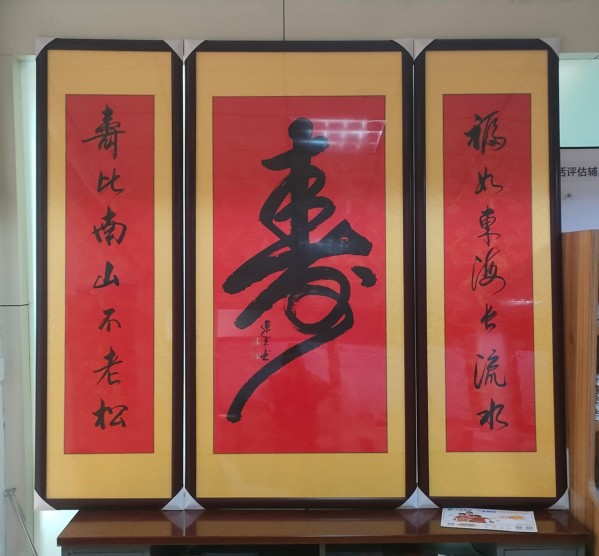 福如東海长流水
壽
壽比南山不老松
活评估辅